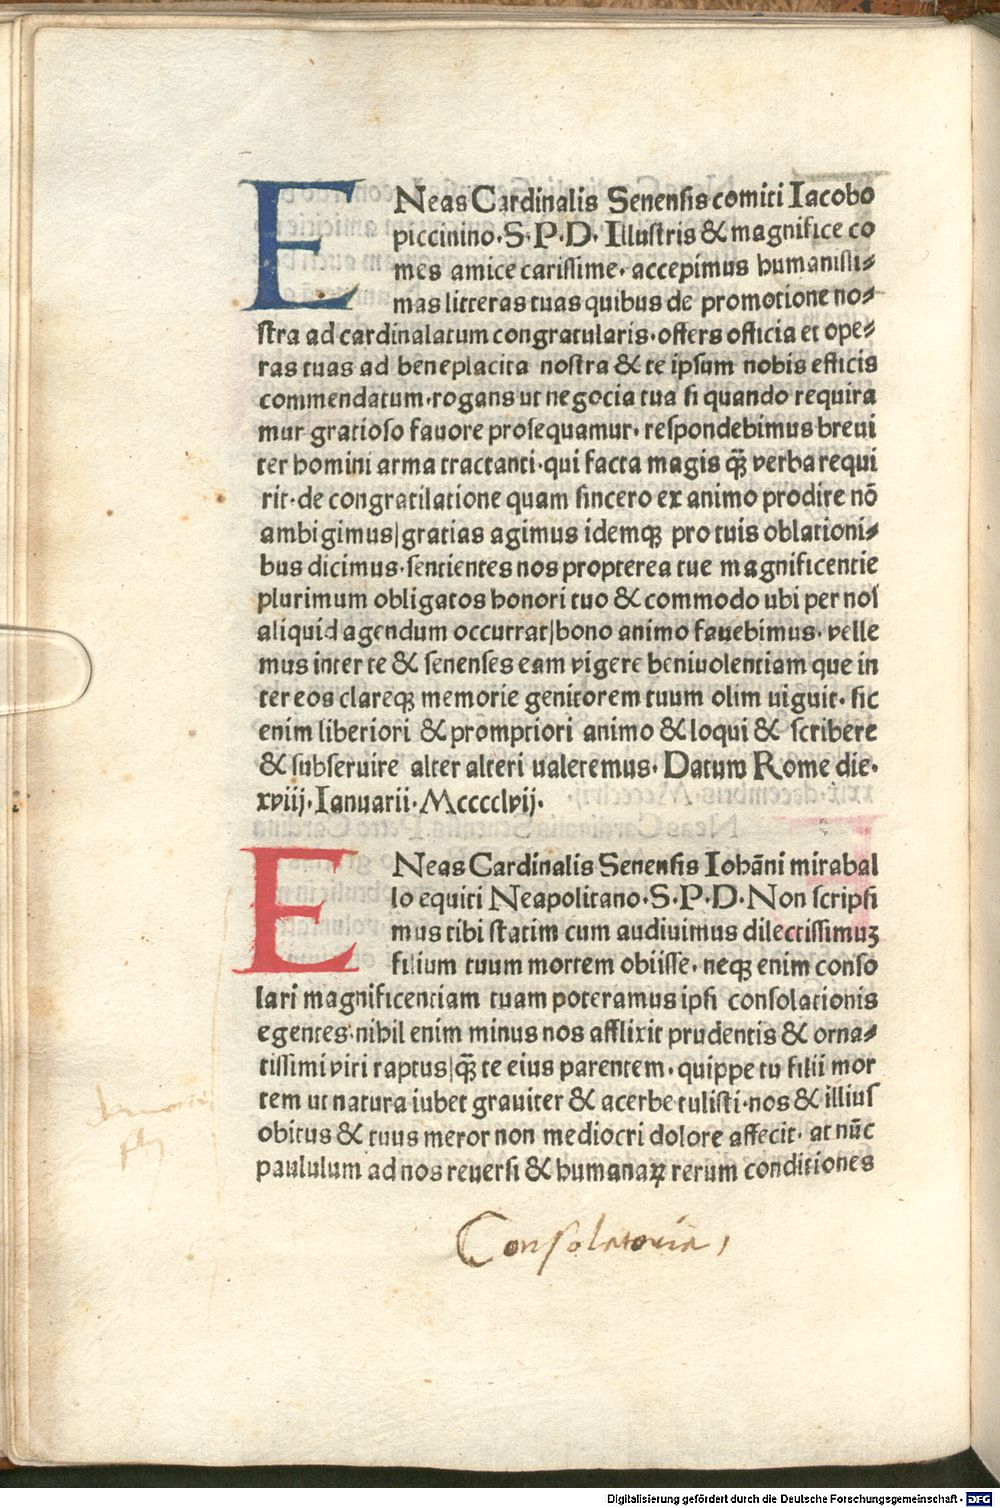 ENeas Cardinalis Senensis comiti Iacobo
piccinino·S·P·D· Illustris & magnifice co
mes amice carissime· accepimus humanissi-
mas litteras tuas quibus de promotione no-
stra ad cardinalatum congratularis·offers officia et ope-
ras tuas ad beneplacita nostra & te ipsum nobis efficis
commendatum·rogans ut negocia tua si quando requira
mur gratioso favore prosequamur· respondebimus brevi
ter homini arma tractanti·qui facta magis qꝫ̄ verba requi
rit·de congratilatione quam sincero ex animo prodire nō
ambigimus|gratias agimus idemqꝫ pro tuis oblationi-
bus dicimus·sentientes nos propterea tue magnificentie
plurimum obligatos honori tuo & commodo ubi per nos
aliquid agendum occurrat|bono animo favebimus· velle
mus inter te & senenses eam vigere benivolentiam que in
ter eos clareqꝫ memorie genitorem tuum olim viguit· sic
enim liberiori & promptiori animo & loqui & scribere
& subservire alter alteri valeremus· Datum Rome die·
xviij·Ianuarii·Mcccclvij·
ENeas Cardinalis Senensis Iohāni mirabal
lo equiti Neapolitano·S·P·D·Non scripsi
mus tibi statim cum audivimus dilectissimuꝫ
filium tuum mortem obiisse· neqꝫ enim conso
lari magnificentiam tuam poteramus ipsi consolationis
egentes·nihil enim minus nos afflixit prudentis & orna-
tissimi viri raptus|qꝫ̄ te eius parentem· quippe tu filii mor
tem ut natura iubet graviter & acerbe tulisti·nos & illius
obitus & tuus meror non mediocri dolore affecit· at nūc
paululum ad nos reversi & humanaꝝ rerum conditiones
Consolatoria,
Digitalisierung gefördert durch die Deutsche Forschungsgemeinschaft - DFG